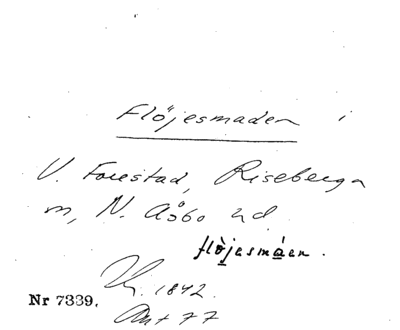 Flöjesmaden i
V. Forestad, Riseberga
sn, N. Åsbo hd
flöjesmáen.
1842.
Nr 7339. Ant 77